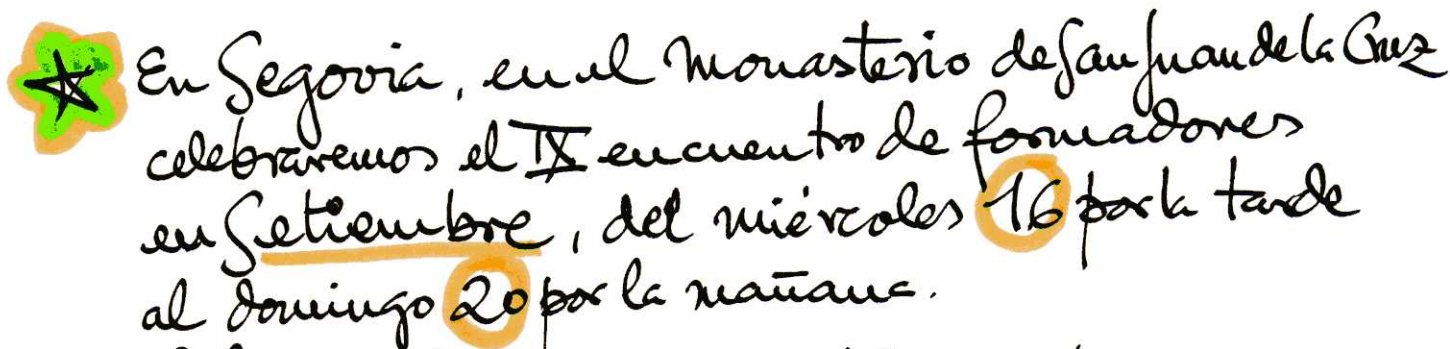 En Segovia, en el Monasterio de San Juan de la Cruz
celebraremos el IX encuentro de formadores
en Setiembre, del miércoles 16 por la tarde
al domingo 20 por la mañana.